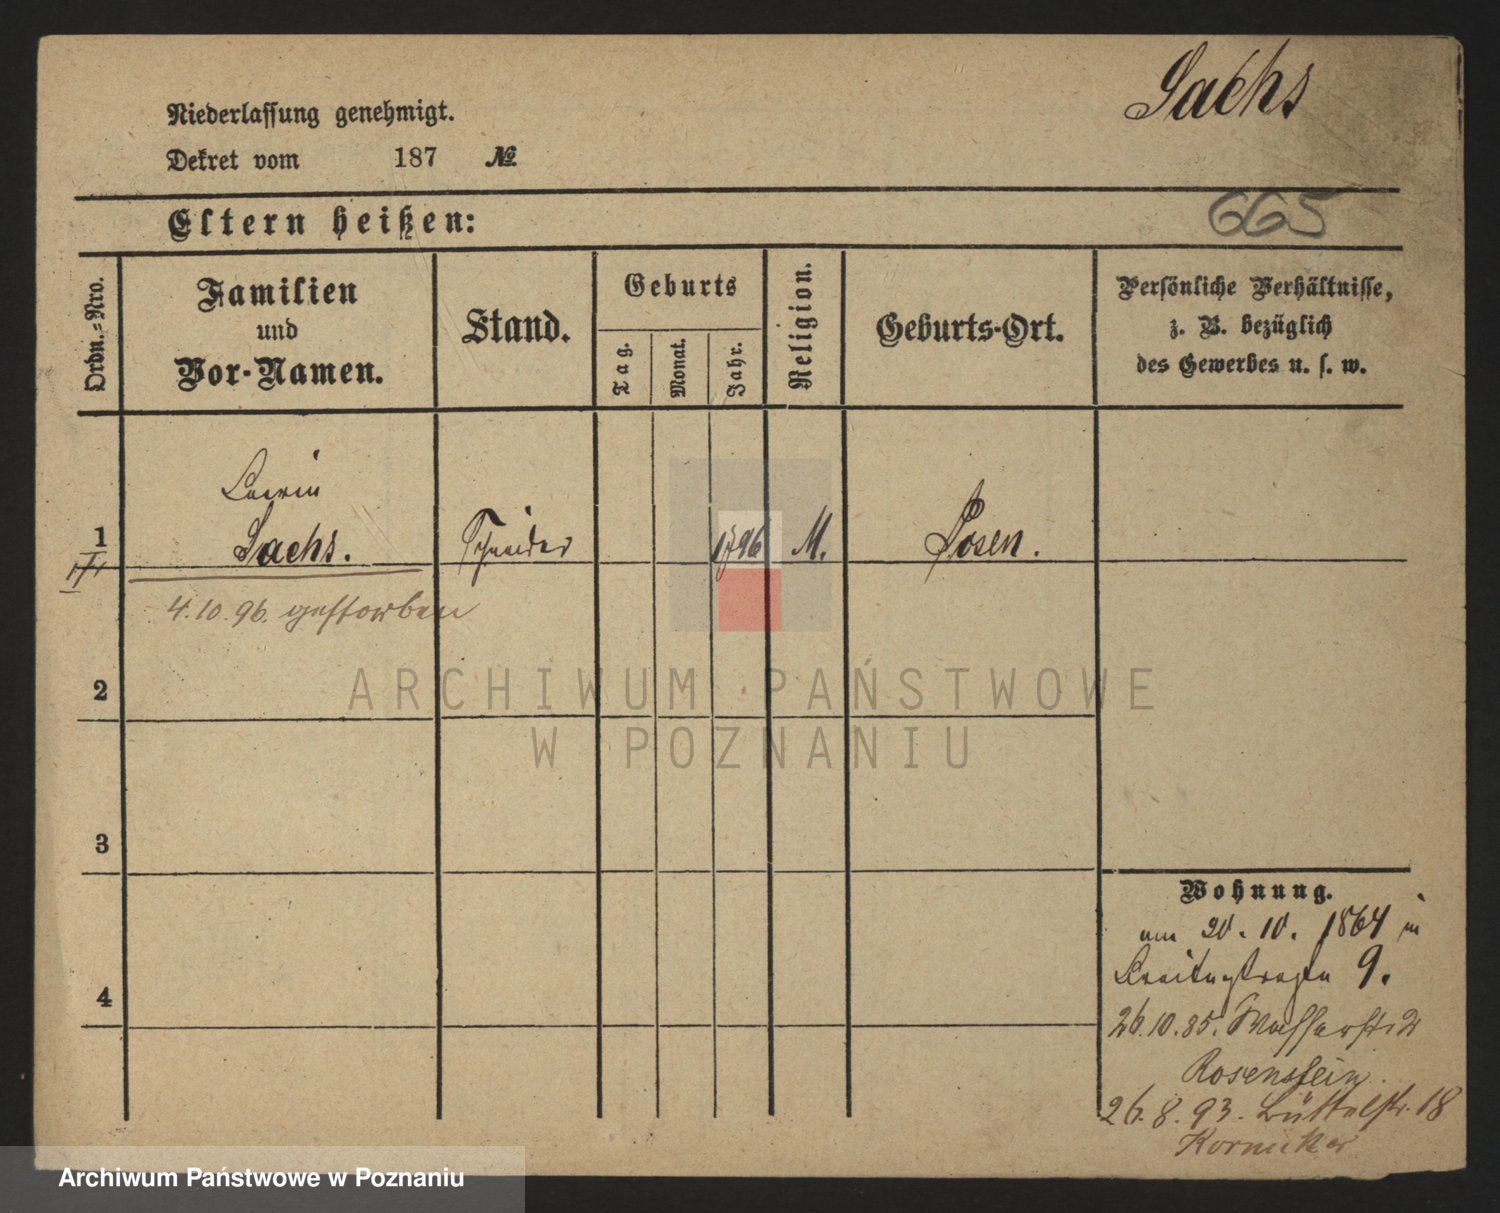 Sachs
Niederlassung genehmigt.
Dekret vom 187 №
Eltern heißen:
665
Ordn.-Nro.
Familien
und
Vor-Namen.
Stand.
Geburts
Tag.
Monat.
Jahr.
Religion.
Geburts-Ort.
Persönliche Verhältnisse,
z. B. bezüglich
des Gewerbes u. s. w.
Lewin
1 Sachs. Schneider 1796 M. Posen.
4.10.96. gestorben
2
ARCHIWUM PAŃSTWOWE
W POZNANIU
3
Wohnung.
am 20. 10. 1864 in
Breitestraße 9.
4
26.10.85. Wasserstr 2
Rosenstein
26.8.93. Büttelstr. 18
Archiwum Państwowe w Poznaniu